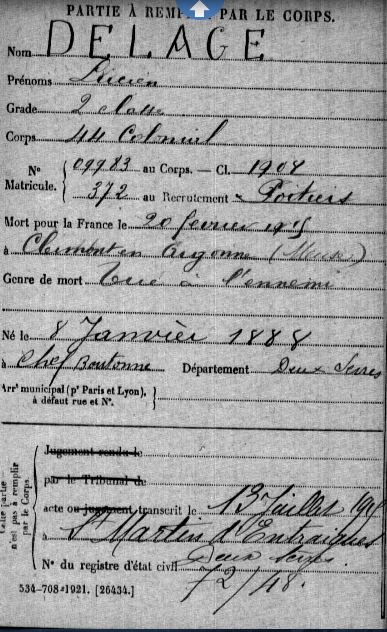 PARTIE À REMPLIR PAR LE CORPS.
Nom DELAGE
Prénoms Lucien
Grade 2 classe
Corps 44 Colonial
N° Matricule. { 09983 au Corps. — Cl. 1908
372 au Recrutement Poitiers
Mort pour la France le 20 février 1915
à Clermont en Argonne (Meuse)
Genre de mort Tué à l'ennemi
Né le 8 Janvier 1888
à Chef Boutonne Département Deux Sèvres
Arrt municipal (pr Paris et Lyon), à défaut rue et N°. }
Cette partie n'est pas à remplir par le Corps.
Jugement rendu le
par le Tribunal de
acte ou jugement transcrit le 13 Juillet
à St Martin d'Entraigues
Deux Sèvres
N° du registre d'état civil 72/48.
534-708-1921. [26434.]